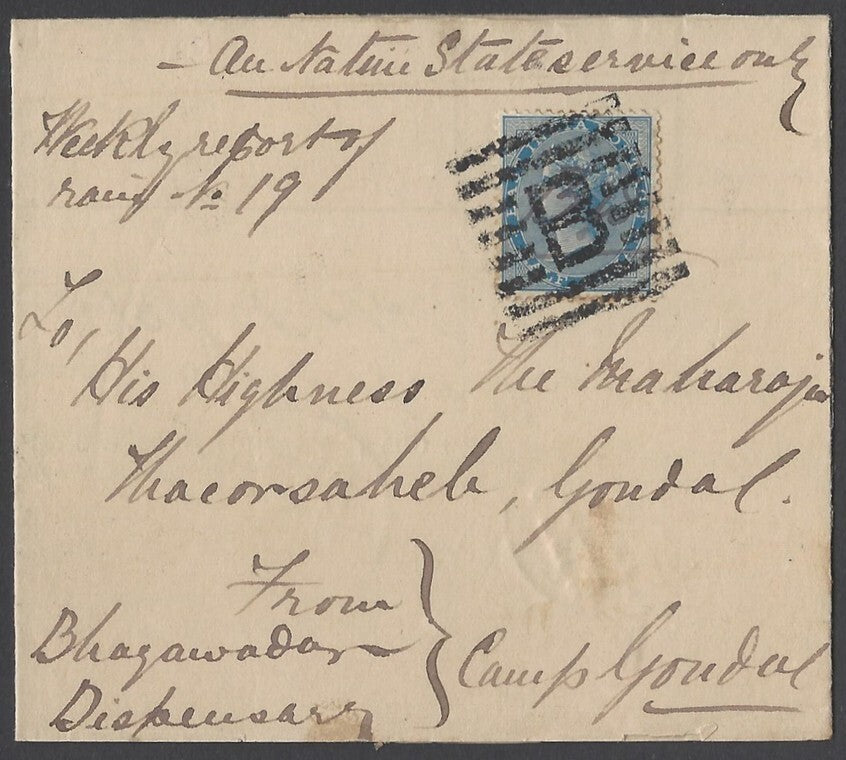 — On Native State service only
Weekly report of
rain No 19
B
To,
His Highness The Maharaja
Thacorsaheb, Gondal.
From
Bhayawadar
Dispensary
Camp Gondal